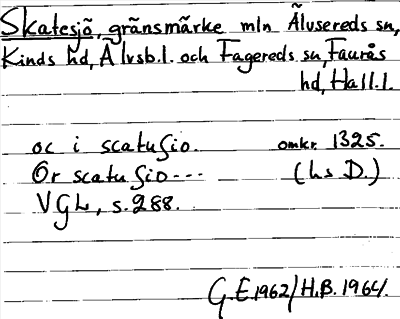 Skatesjö, gränsmärke mln Älvsereds sn,
Kinds hd, Älvsb.l. och Fagereds sn, Faurås
hd, Hall.l.
oc i scatusio. omkr. 1325.
Or scatusio--- (hs D.)
VGL, s.288.
G.E.1962/H.B.1964.